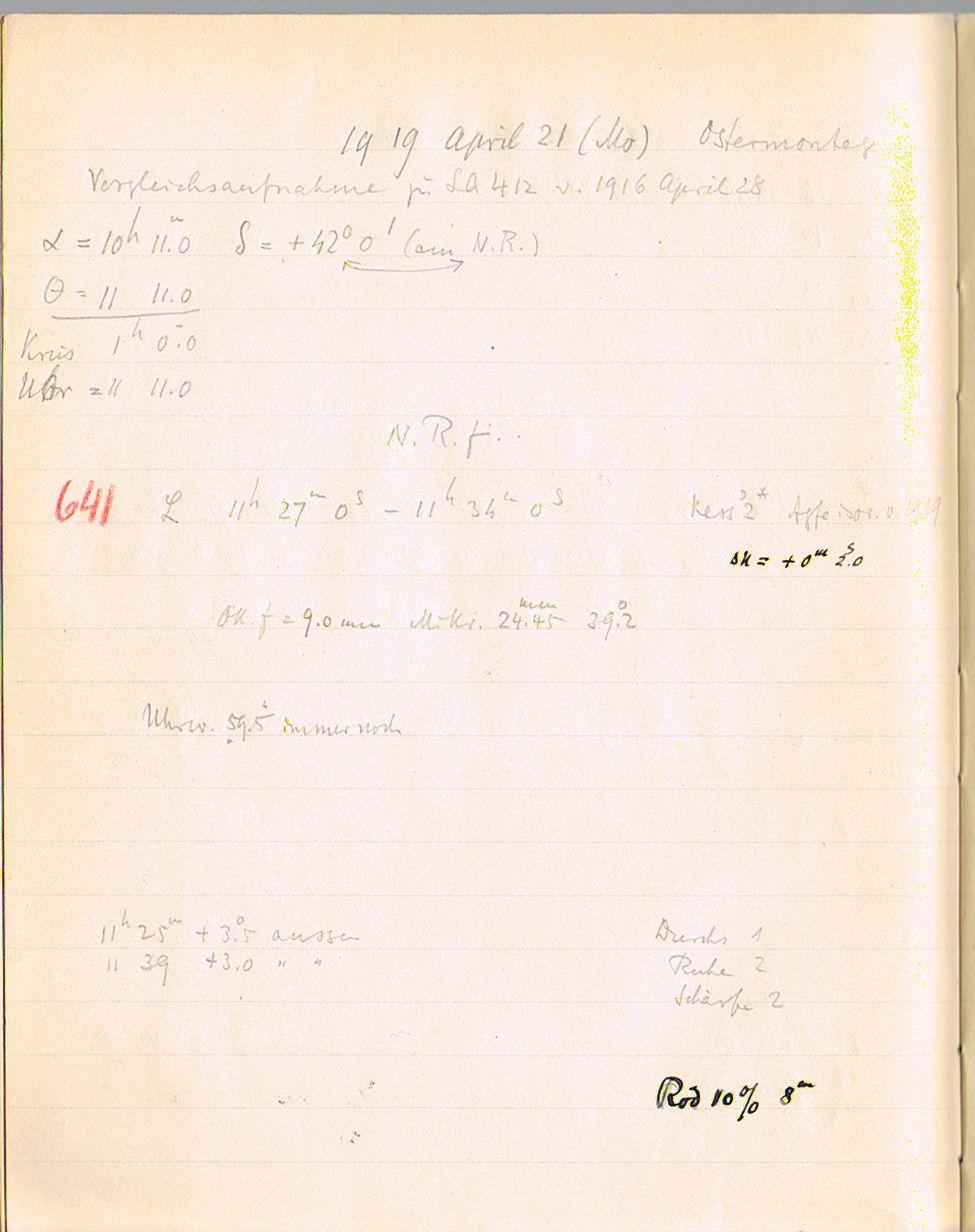 1919 April 21 (Mo) Ostermontag
Vergleichsaufnahme zu LA 412 v. 1916 April 28
α = 10ʰ 11ᵐ.0 δ = +42° 0′ (ein N.R.)
Θ = 11 11.0
Kreis 1ʰ 0ᵐ.0
Uhr = 11 11.0
N.R.f..
641 L 11ʰ 27ᵐ 0ˢ – 11ʰ 34ᵐ 0ˢ 2* Agfa
Δu = +0ᵐ 2ˢ.0
Ok. f = 9.0 mm Mikr. 24.45 mm 39°.2
Uhrw. 59.5 immer noch
11ʰ 25ᵐ +3°.5 aussen
11 39 +3.0 " "
Durchs 1
Ruhe 2
Schärfe 2
Rod 10% 8ᵐ